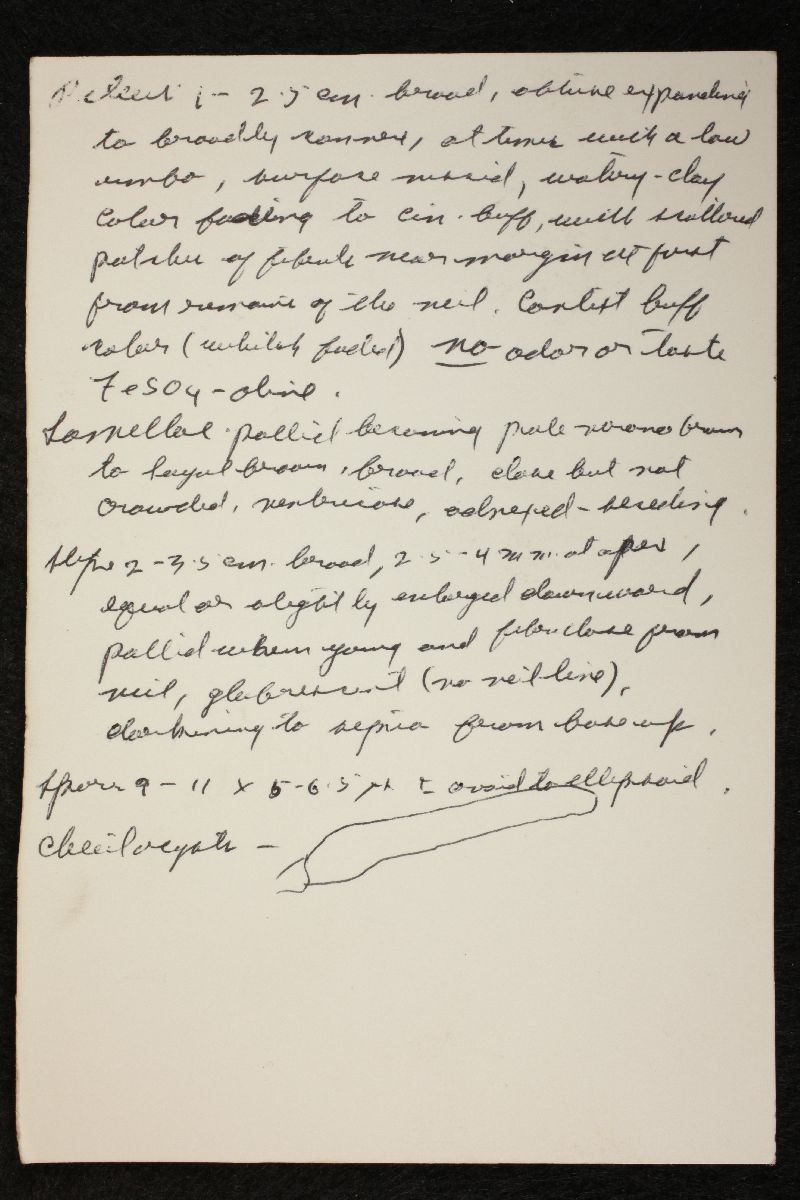 Pileus 1-2.5 cm. broad, obtuse expanding
to broadly convex, at times with a low
umbo, surface viscid, watery-clay
color fading to cin. buff, with scattered
patches of fibrils near margin at first
from remains of the veil. Context buff
color (whitish faded) no odor or taste
FeSO4 - olive.
Lamellae pallid becoming pale brown
to bayal brown, broad, close but not
crowded, ventricose, adnexed-seceding.
Stipe 2-3.5 cm. broad, 2.5-4 mm. at apex,
equal or slightly enlarged downward,
pallid when young and fibrillose from
veil, glabrescent (no veil line),
darkening to sepia from base up.
Spores 9-11 x 5-6.5 µ ± ovoid to ellipsoid.
Cheilocysts -